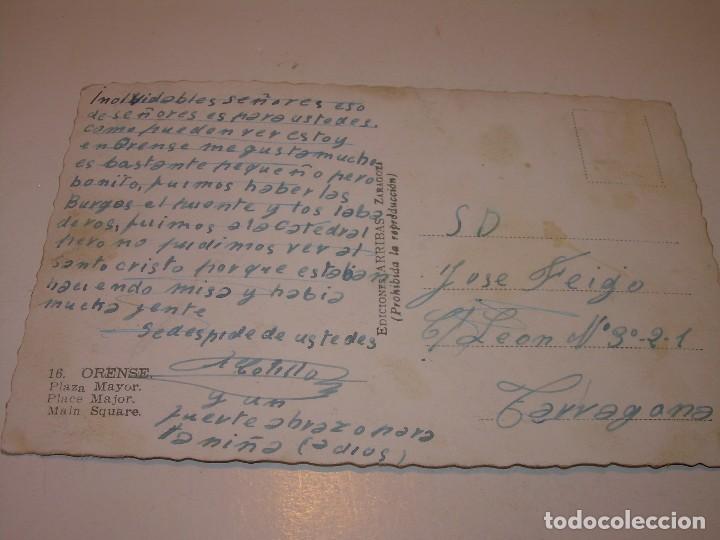 Inolvidables señores eso
de señores es para ustedes.
come pueden ver estoy
en Orense me gusta mucho
es bastante pequeño pero
bonito, fuimos haber las
Burgas el puente y los laba
deros, fuimos a la Catedral
pero no pudimos ver al
santo cristo porque estaban
haciendo misa y habia
mucha jente
Se despide de ustedes
y un
fuerte abrazo para
la niña (adios)
16. ORENSE.
Plaza Mayor.
Place Major.
Main Square.
EDICIONES ARRIBAS ZARAGOZA
(Prohibida la reproducción)
SD
Jose Feigo
C/ Leon Nº 3º-2-1
Tarragona
todocoleccion
todocoleccion.net